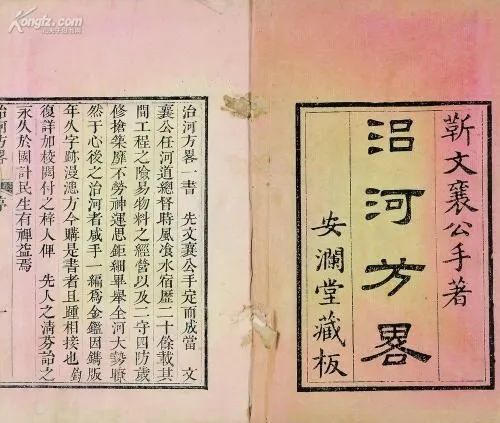 Kongfz.com
靳文襄公手著
治河方畧
安瀾堂藏板
治河方畧一書　先文襄公手定而成當　文
襄公任河道總督時風飡水宿歷二十餘載其
間工程之險易物料之經營以及二守四防歲
修搶築靡不勞神運思鉅細畢舉全河大勢瞭
然于心後之治河者咸手一編爲金鑑因鐫版
年久字跡漫漶方今購是書者且踵相接也鈞
復詳加校閱付之梓人俾　先人之淸芬詒之
永久於國計民生有裨益焉
治河方畧